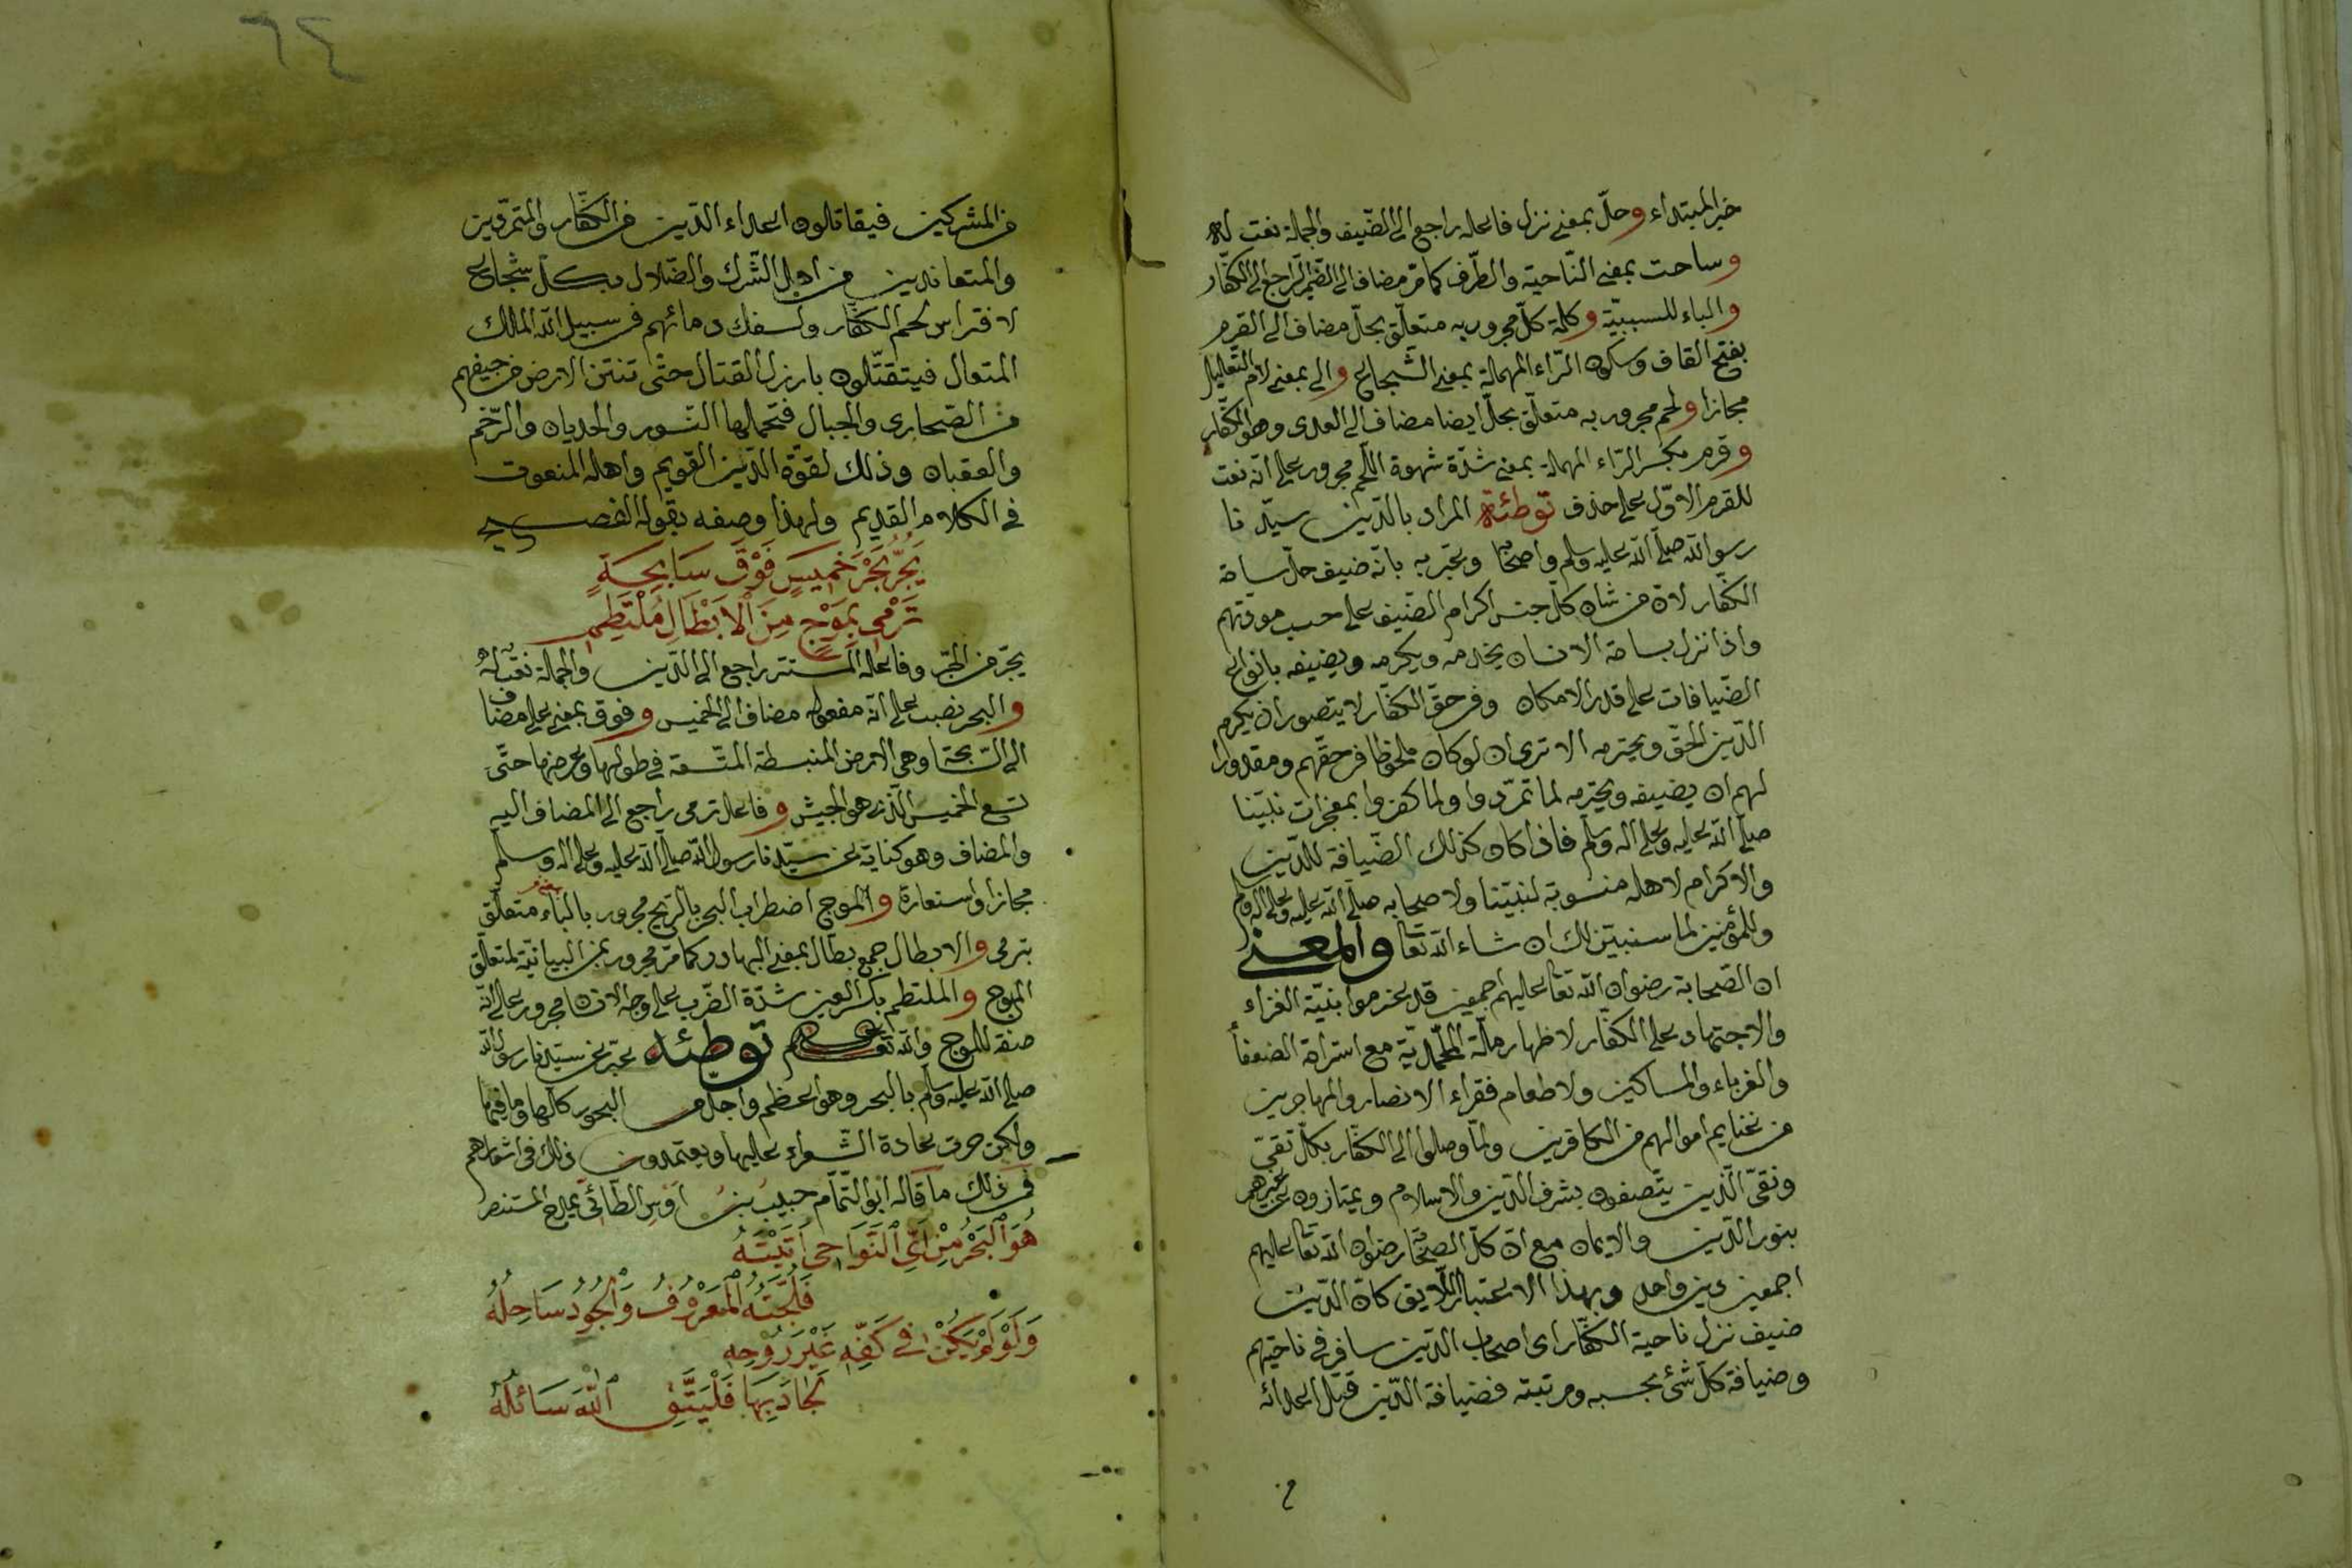 خبر المبتداء وحلّ بمعنى نزل فاعله راجع الى الضّيف والجملة نعت له
وساحت بمعنى النّاحية والطّرف كما مرّ مضاف الى الضّمير الرّاجع الى الكفّار
والباء للسببيّة وكلمة كلّ مجرور به متعلّق بحلّ مضاف الى القرم
بفتح القاف وسكون الرّاء المهملة بمعنى الشّجاع والى بمعنى لام التّعليل
مجازا ولحم مجرور به متعلّق بحلّ ايضا مضاف الى العدى وهو الكفّار
وقرم بكسر الرّاء المهملة بمعنى شدّة شهوة اللّحم مجرور على انّه نعت
للقرم الاوّل على حذف توطئة المراد بالدّين سيّدنا
رسول الله صلّى الله عليه وسلم واصحابه ويخبر به بانّه ضيف حلّ ساحة
الكفّار لانّ من شان كلّ جنس اكرام الضّيف على حسب مودّتهم
واذا نزل بساحة الانسان يخدمه ويكرمه ويضيفه بانواع
الضّيافات على قدر الامكان وفى حقّ الكفّار لا يتصور ان يكرم
الدّين الحقّ ويحترمه الا ترى ان لو كان ملحوظا فى حقّهم ومقدورا
لهم ان يضيفه ويحترمه لما تمرّدوا ولما كفروا بمعجزات نبيّنا
صلّى الله عليه وعلى اله وسلّم فاذا كان كذلك الضّيافة للدّين
والاكرام لاهله منسوبة لنبيّنا ولاصحابه صلّى الله عليه وعلى اله وسلم
وللمؤمنين لما سنبيّن لك ان شاء الله تعا والمعنى
ان الصّحابة رضوان الله تعا عليهم اجمعين قد عزموا بنيّة الغزاء
والاجتهاد على الكفّار لاظهار ملّة المحمّديّة مع استراحة الضعفأ
والغرباء والمساكين ولاطعام فقراء الانصار والمهاجرين
من غنايم اموالهم من الكافرين ولمّا وصلوا الى الكفّار بكلّ تقىّ
ونقىّ الّذين يتّصفون بشرف الدّين والاسلام ويمتازون عن غيرهم
بنور الدّين والايمان مع انّ كلّ الصّحابة رضوان الله تعا عليهم
اجمعين دين واحد وبهذا الاعتبار اللّايق كانّ الدّين
ضيف نزل ناحية الكفّار اى اصحاب الدّين سافر فى ناحيتهم
وضيافة كلّ شئ بحسبه ومرتبته فضيافة الدّين قبل اعدائه
من
٦٤
من المشركين فيقاتلون اعداء الدّين من الكفّار والمتمرّدين
والمتعاندين من اهل الشّرك والضّلال بكلّ شجاع
لافتراس لحم الكفّار ولسفك دمائهم فى سبيل الله الملك
المتعال فيتقتّلون بارزل القتال حتّى تنتن الارض من جيفهم
من الصّحارى والجبال فتحملها النّسور والحديان والرّخم
والعقبان وذلك لقوّة الدّين القويم واهله المنعوت
فى الكلام القديم ولهذا وصفه بقوله الفصيح
يَجُرُّ بَحْرَ خَمِيسٍ فَوْقَ سَابِحَةٍ
تَرْمِى بِمَوْجٍ مِنَ الْاَبْطَالِ مُلْتَطِمِ
يجرّ من الجرّ وفاعله المستتر راجع الى الدّين والجملة نعت له
والبحر نصب على انّه مفعوله مضاف الى الخميس وفوق بمعنى على مضاف
الى السّابحة وهى الارض المنبسطة المتّسعة فى طولها وعرضها حتّى
تسع الخميس الّذى هو الجيش وفاعل ترمى راجع الى المضاف اليه
والمضاف وهو كناية عن سيّدنا رسول الله صلّى الله عليه وعلى اله وسلّم
مجازا واستعارة والموج اضطراب البحر بالرّيح مجرور بالباء متعلّق
بترمى والابطال جمع بطّال بمعنى البهادر كما مرّ مجرور بمن البيانيّة المتعلّق
الموج والملتطم بكسر العين شدّة الضّرب على وجه الانسان مجرور على انّه
صفة للموج والله تعا اعلم توطئه يخبر عن سيّدنا رسول الله
صلّى الله عليه وسلم بالبحر وهو اعظم واجلّ من البحور كلّها وما فيها
ولكن جرت عادة الشّعراء عليها ويعتمدون ذلك فى اشعارهم
فمن ذلك ما قاله ابو التّمّام حبيب بن اوس الطّائى يمدح المستنصر
هُوَ الْبَحْرُ مِنْ اَىِّ النَّوَاحِى اَتَيْتَهُ
فَلُجَّتُهُ الْمَعْرُوفُ وَالْجُودُ سَاحِلُهُ
وَلَوْ لَمْ يَكُنْ فِى كَفِّهِ غَيْرَ رُوْحِهِ
لَجَادَ بِهَا فَلْيَتَّقِ اللهَ سَائِلُهُ